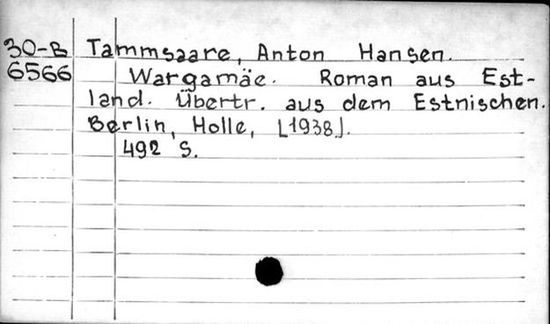 30-B Tammsaare, Anton Hansen.
6566 Wargamäe. Roman aus Est-
land. Übertr. aus dem Estnischen.
Berlin, Holle, [1938].
492 S.